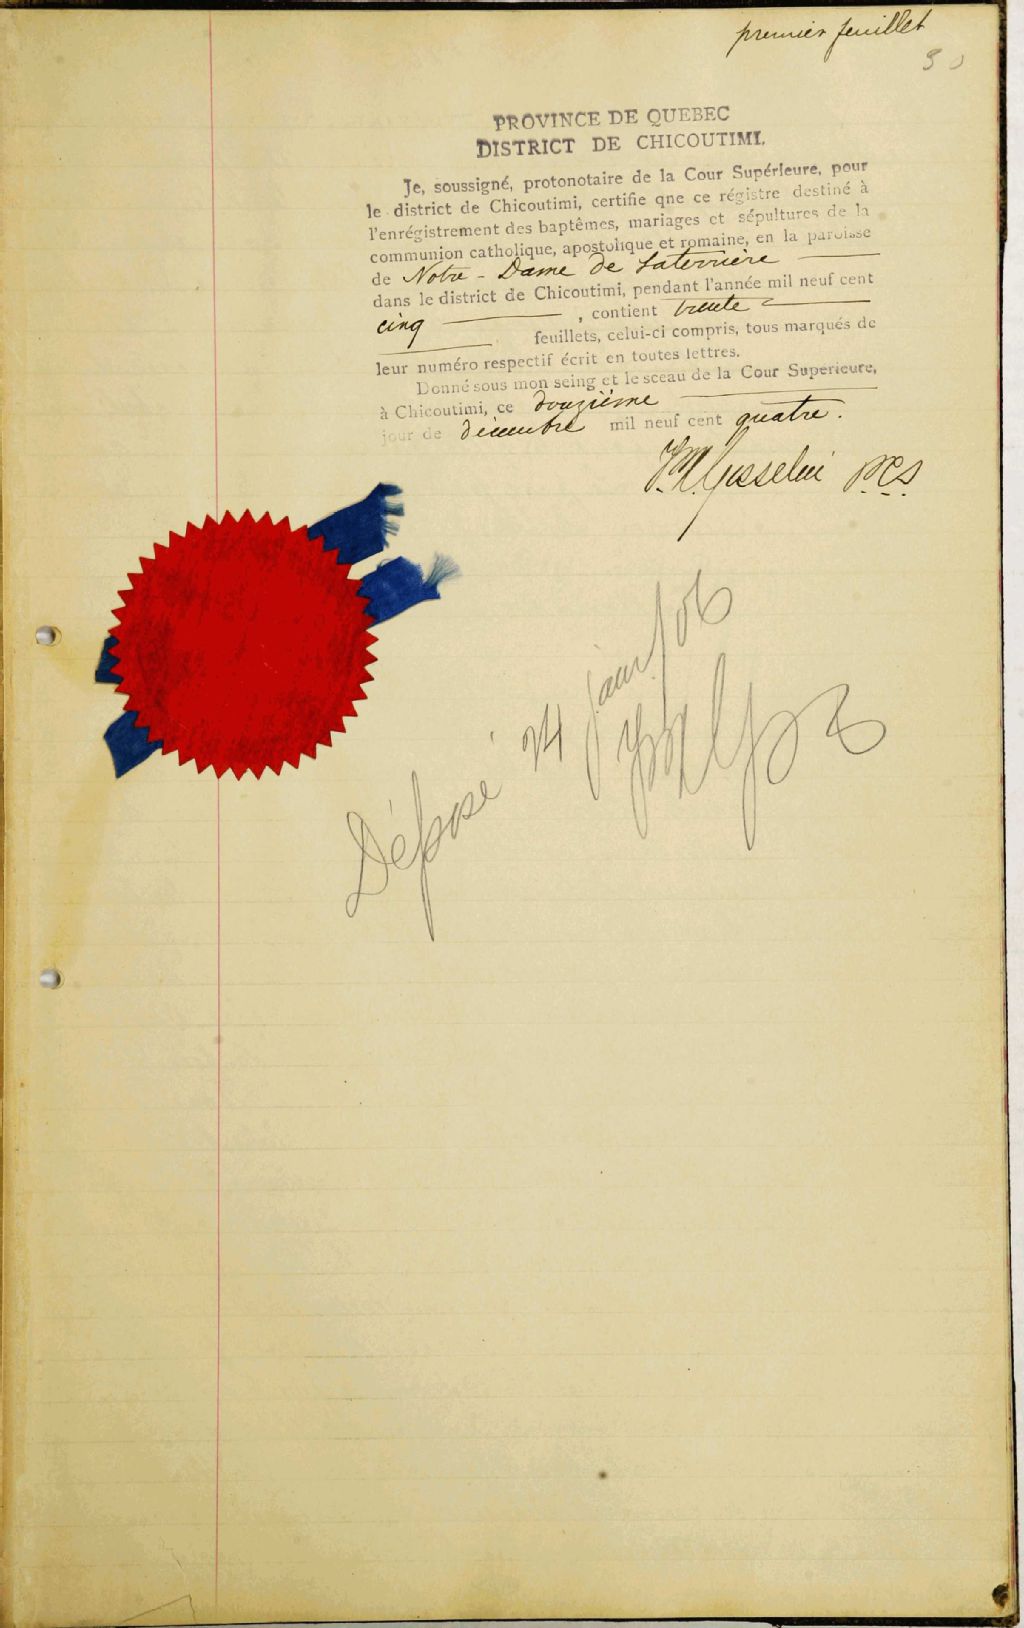 premier feuillet
30
PROVINCE DE QUEBEC
DISTRICT DE CHICOUTIMI.
Je, soussigné, protonotaire de la Cour Supérieure, pour
le district de Chicoutimi, certifie qne ce régistre destiné à
l'enrégistrement des baptêmes, mariages et sépultures de la
communion catholique, apostolique et romaine, en la paroisse
de Notre-Dame de Laterrière
dans le district de Chicoutimi, pendant l'année mil neuf cent
cinq , contient trente
feuillets, celui-ci compris, tous marqués de
leur numéro respectif écrit en toutes lettres.
Donné sous mon seing et le sceau de la Cour Superieure,
à Chicoutimi, ce douzième
jour de décembre mil neuf cent quatre.
Gosselin P.C.S.
Déposé 24 janv. 06